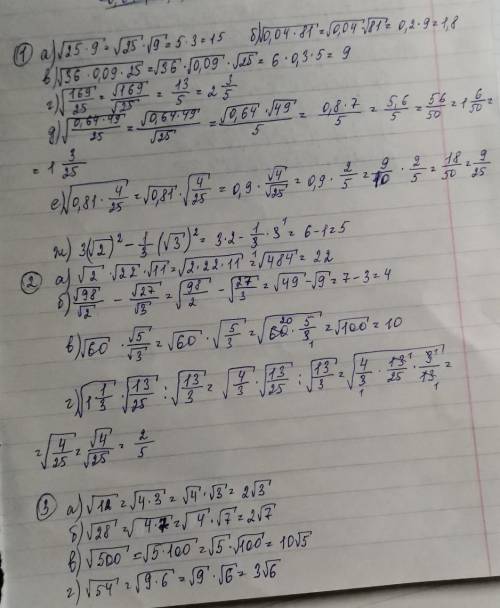 ① а) √25·9 = √25·√9 = 5·3 = 15 б) √0,04·81 = √0,04·√81 = 0,2·9 = 1,8
в) √36·0,09·25 = √36·√0,09·√25 = 6·0,3·5 = 9
г) √169/25 = √169/√25 = 13/5 = 2 3/5
д) √0,64·49/25 = √0,64·49/√25 = √0,64·√49/5 = 0,8·7/5 = 5,6/5 = 56/50 = 1 6/50 =
= 1 3/25
е) √0,81·4/25 = √0,81·√4/25 = 0,9·√4/√25 = 0,9·2/5 = 9/10·2/5 = 18/50 = 9/25
ж) 3(√2)² − 1/3(√3)² = 3·2 − 1/3·3¹ = 6−1 = 5
② а) √2·√22·√11 = √2·22·11 = √484 = 22
б) √98/√2 − √27/√3 = √98/2 − √27/3 = √49 − √9 = 7−3 = 4
в) √60·√5/√3 = √60·√5/3 = √60²⁰·5/3₁ = √100 = 10
г) √1 1/3·√13/25 : √13/3 = √4/3·√13/25 : √13/3 = √4/3₁·13¹/25·3¹/13₁ =
= √4/25 = √4/√25 = 2/5
③ а) √12 = √4·3 = √4·√3 = 2√3
б) √28 = √4·7 = √4·√7 = 2√7
в) √500 = √5·100 = √5·√100 = 10√5
г) √54 = √9·6 = √9·√6 = 3√6